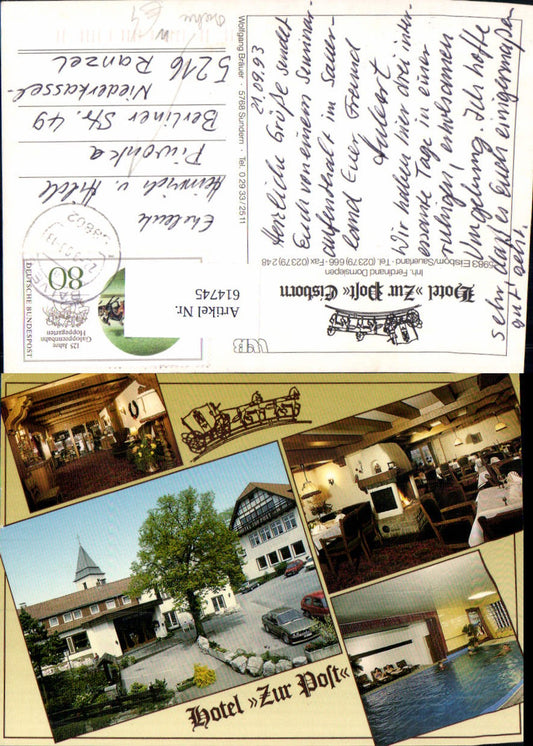 Herzliche Grüße sendet
Euch von einem Seminar-
aufenthalt im Sauer-
land Euer Freund
Wir haben hier drei inter-
essante Tage in einer
ruhigen, erholsamen
Umgebung. Ich hoffe
sehr, daß es Euch einigermaßen
gut geht.
21.09.93
Wolfgang Bräuer · 5768 Sundern · Tel. 0 29 33 / 25 11
Hotel »Zur Post« Eisborn
Inh. Ferdinand Dornseifer
5983 Eisborn/Sauerland · Tel. (02379) 666 · Fax (02379) 248
Artikel Nr.
614745
125 Jahre
Galopprennbahn
Hoppegarten
80
DEUTSCHE BUNDESPOST
Eheleute
Heinrich u. Hilde
Piwonka
Berliner Str. 49
Niederkassel-
Ranzel
5216
Hotel »Zur Post«